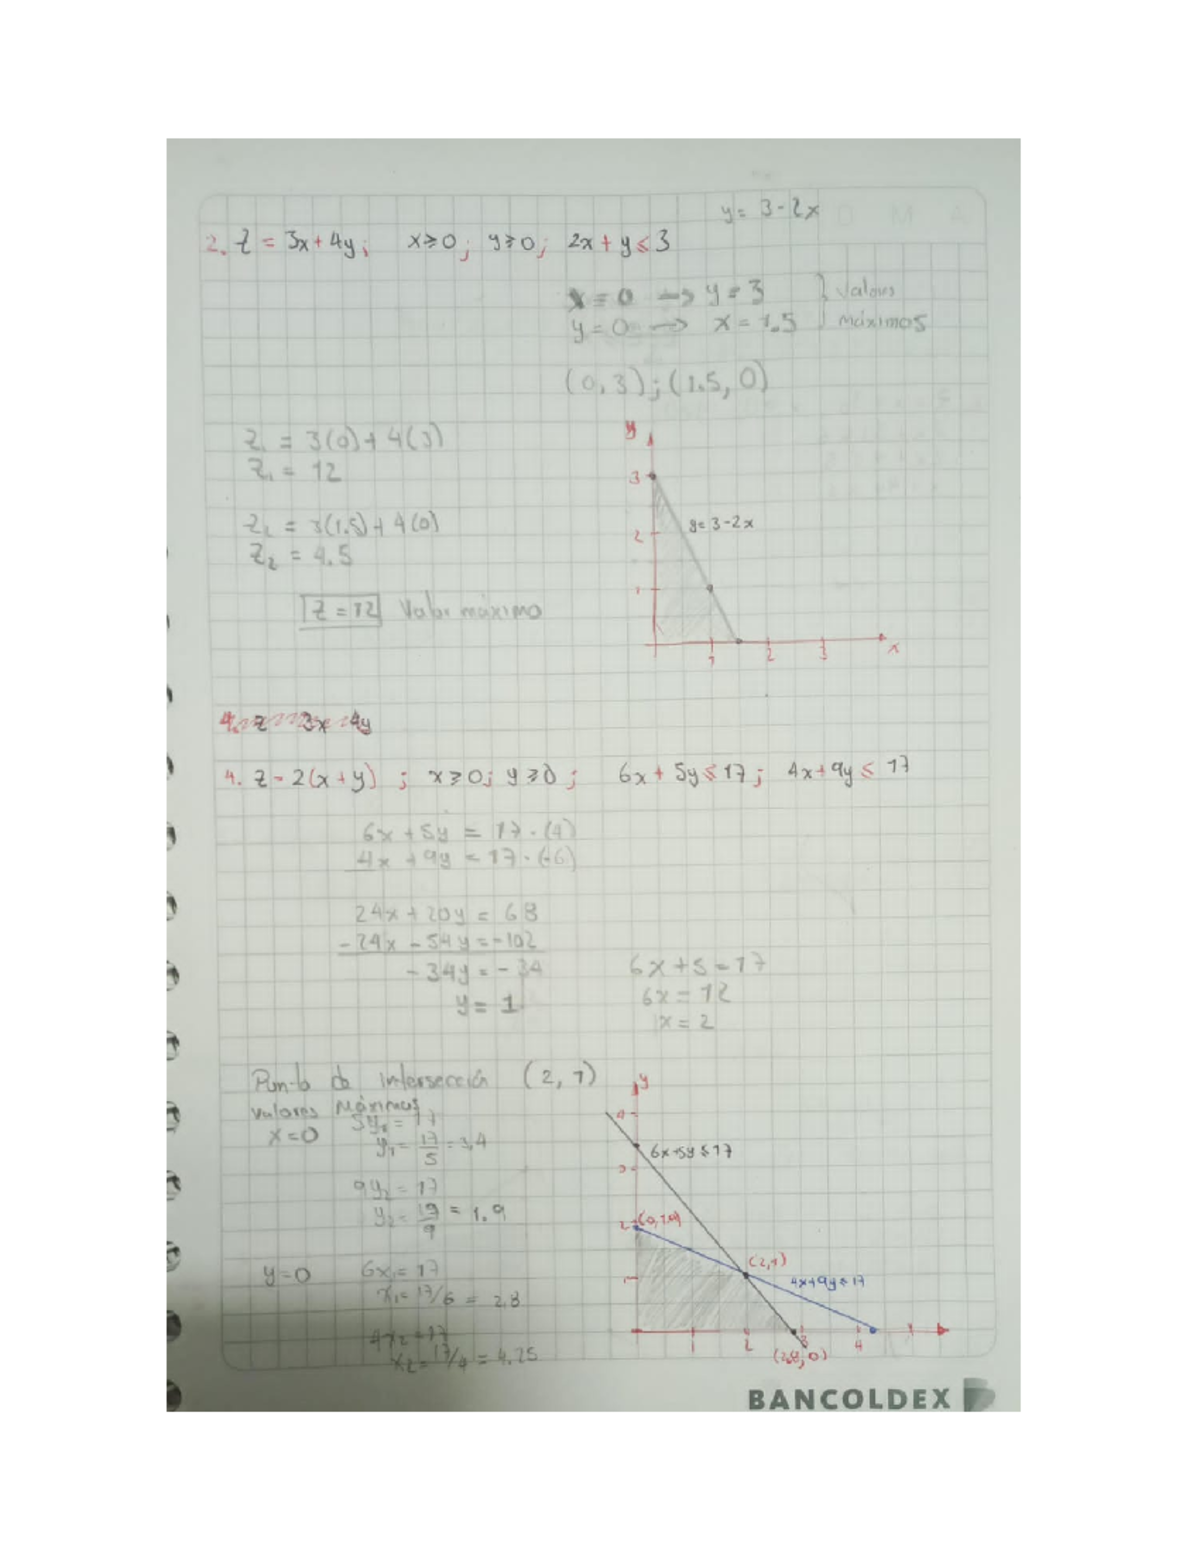 y = 3-2x
O M A
2. Z = 3x + 4y; x≥0; y≥0; 2x + y ≤ 3
x = 0 → y = 3 } Valores
y = 0 → x = 1.5 } máximos
(0,3); (1.5, 0)
Z₁ = 3(0) + 4(3)
Z₁ = 12
Z₂ = 3(1.5) + 4(0)
Z₂ = 4.5
Z = 12 Valor máximo
y
3
2
1
y = 3-2x
1 2 3 x
4. Z 3x 4y
4. Z = 2(x+y) ; x≥0; y≥0 ; 6x + 5y ≤ 17; 4x + 9y ≤ 17
6x + 5y = 17 · (4)
4x + 9y = 17 · (-6)
24x + 20y = 68
-24x - 54y = -102
-34y = -34
y = 1
6x + 5 = 17
6x = 12
x = 2
Punto de intersección (2, 1)
Valores Máximos
x = 0 5y₁ = 17
y₁ = 17/5 = 3,4
9y₂ = 17
y₂ = 17/9 = 1.9
y = 0 6x₁ = 17
x₁ = 17/6 = 2,8
4x₂ = 17
x₂ = 17/4 = 4.25
y
4
6x+5y≤17
3
2 (0,1.9)
(2,1)
4x+9y≤17
1
1 2 3 4
(2,8, 0)
BANCOLDEX